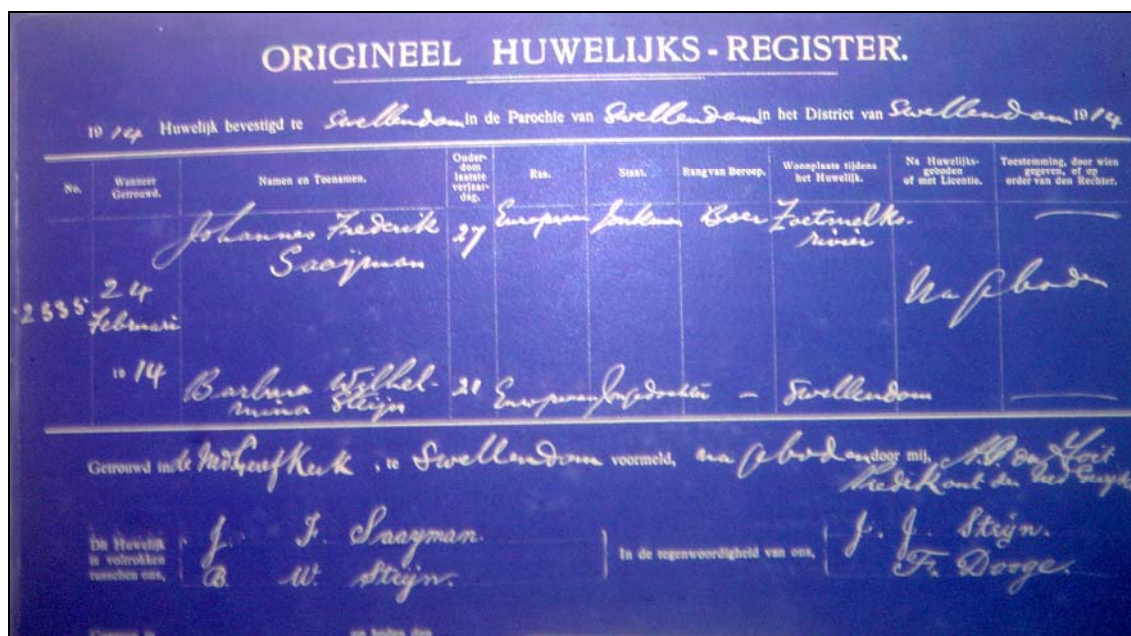 ORIGINEEL HUWELIJKS-REGISTER.
19 14 Huwelijk bevestigd te Swellendam in de Parochie van Swellendam in het District van Swellendam 19 14
No. Wanneer Getrouwd. Namen en Toenamen. Ouder-dom laatste verjaar-dag. Ras. Staat. Rang van Beroep. Woonplaats tijdens het Huwelijk. Na Huwelijks-geboden of met Licentie. Toestemming, door wien gegeven, of op order van den Rechter.
Johannes Frederik 27 European Jonkman Boer Zoetmelks-
Saaijman rivier
24 Na Geboden
2535 Februari
19 14
Barbara Wilhel- 21 European Jongedochter - Swellendam
mina Steijn
Getrouwd in de Ned Geref Kerk, te Swellendam voormeld, na geboden door mij,
Predikant der Ned
Dit Huwelijk is voltrokken tusschen ons,
J. F. Saayman.
B. W. Steijn.
In de tegenwoordigheid van ons,
J. J. Steijn.
F. Dorge.